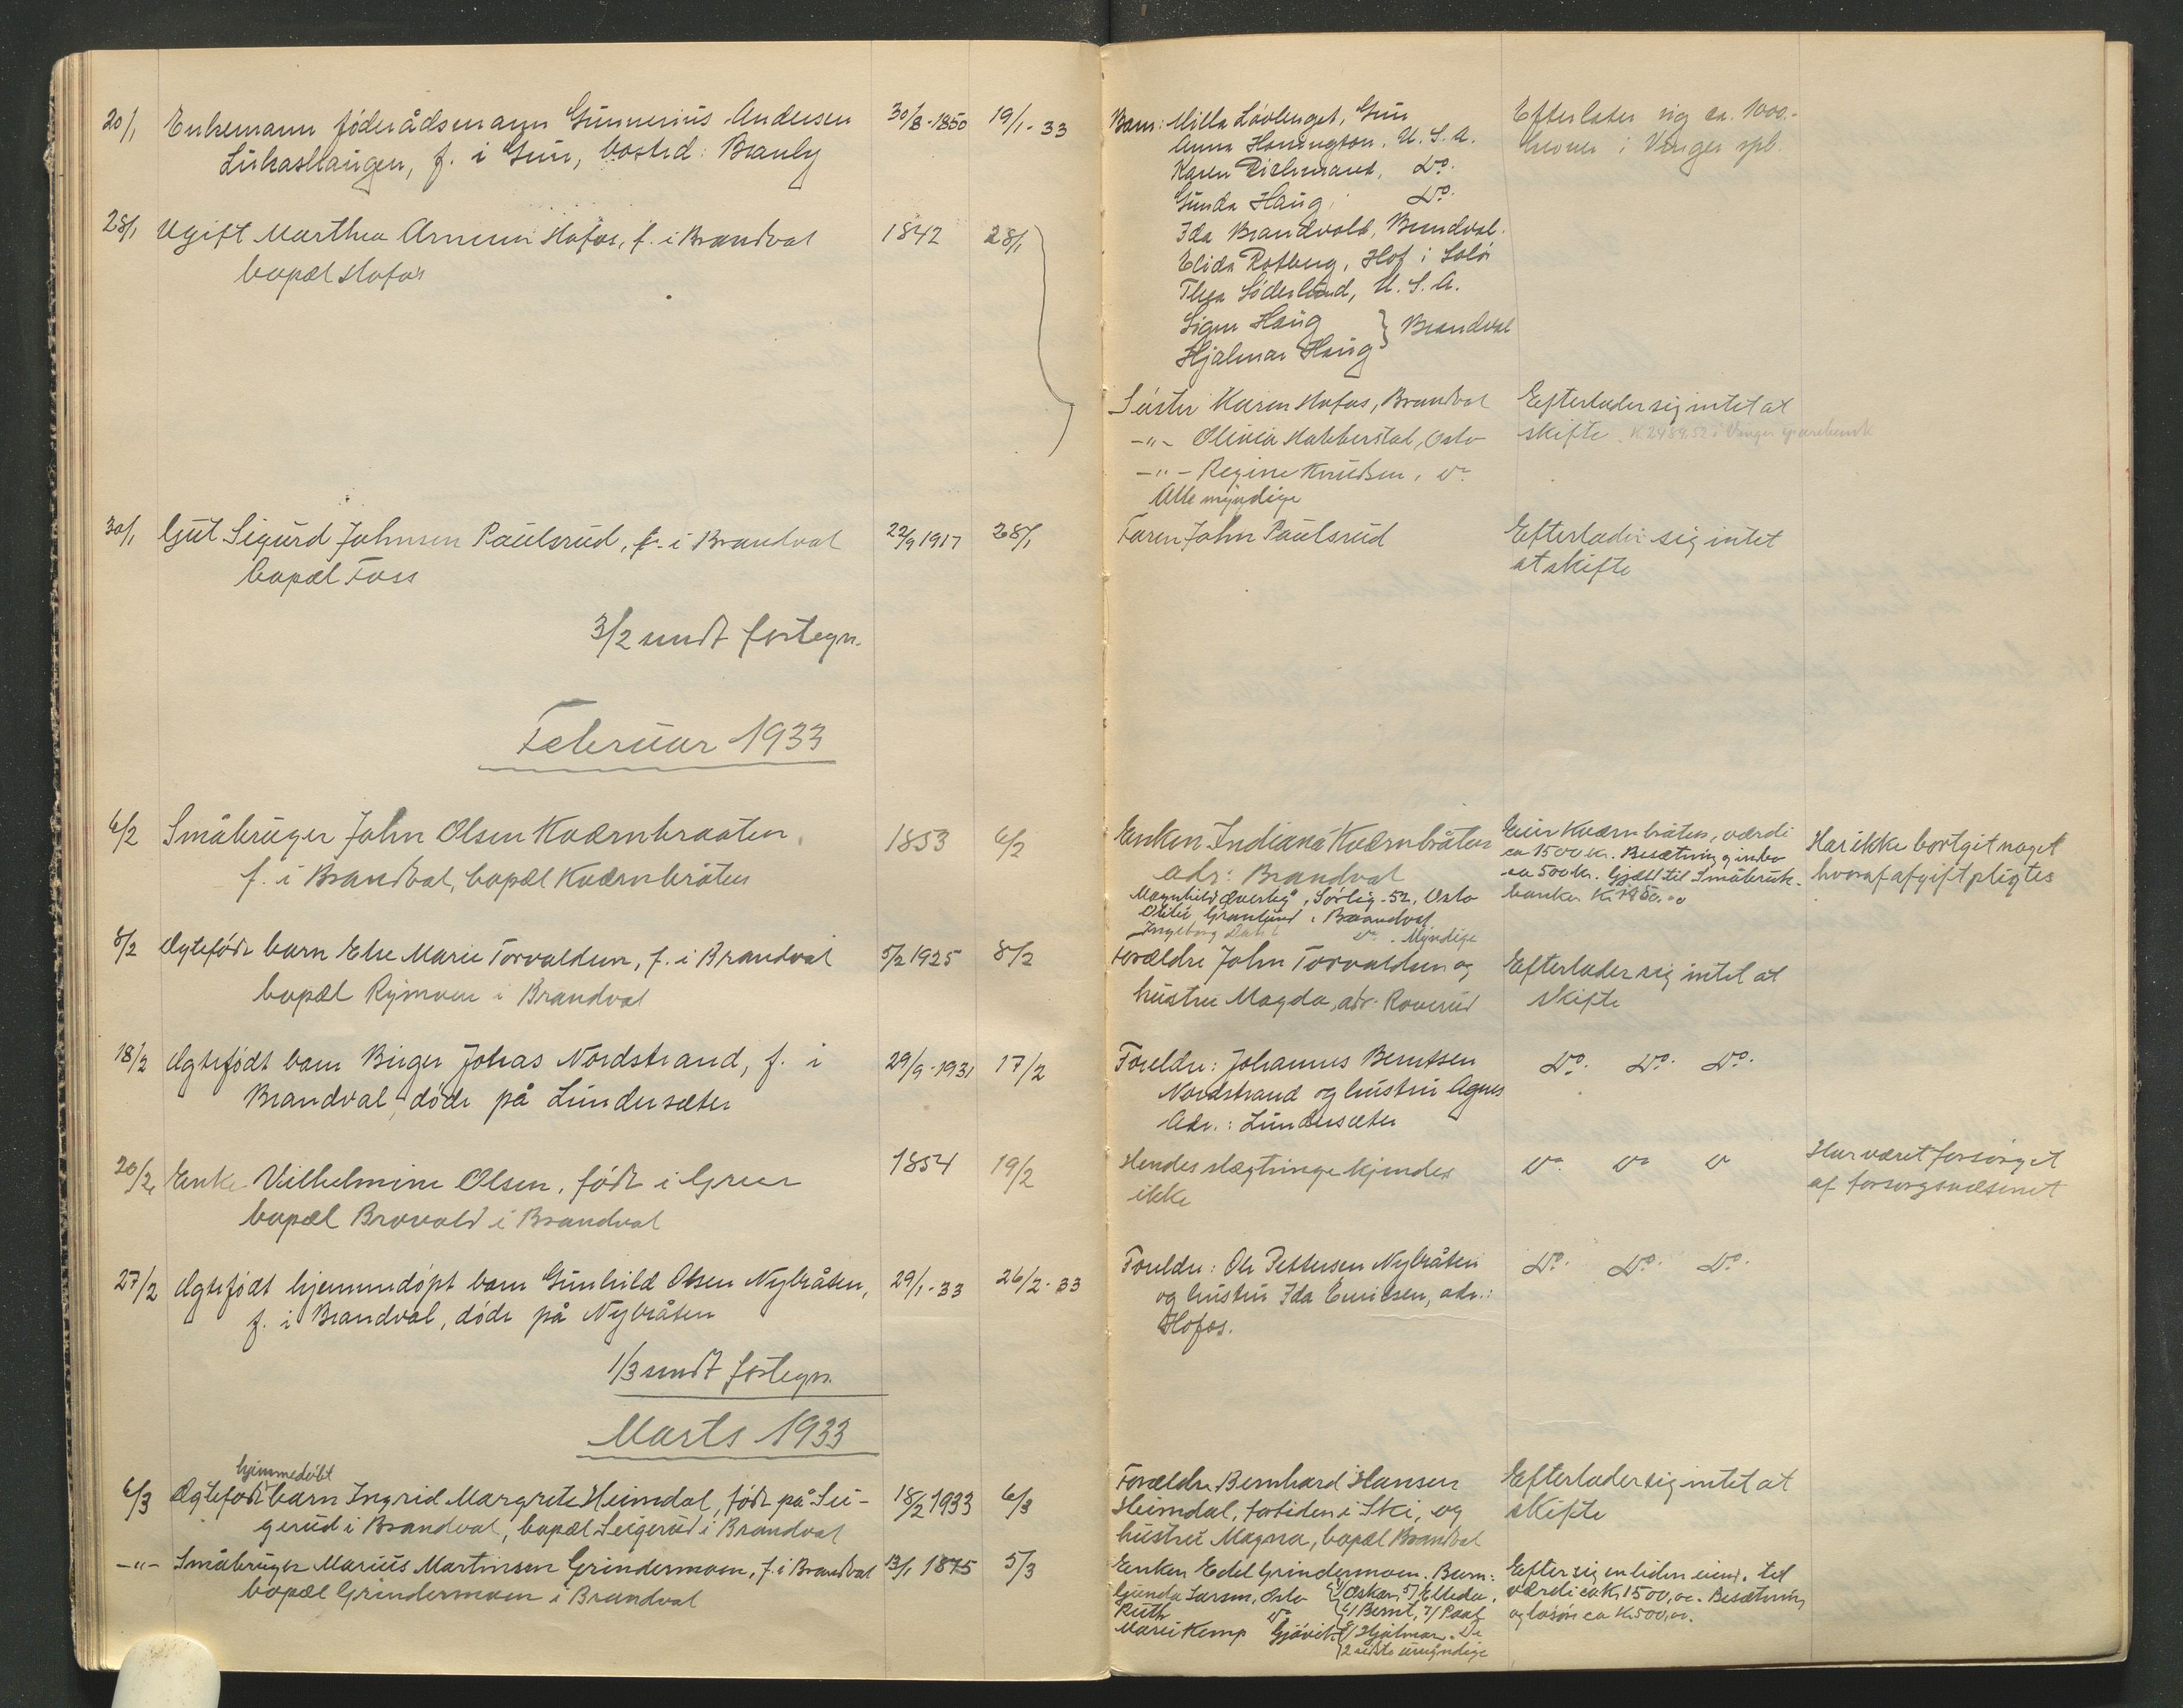 20/1 Enkemann föderådsmann Gunnerius Andersen 30/8-1850 19/1-33
Lukashaugen, f. i Grue, bosted: Brauly
28/1 Ugift Marthea Arnesen Hofos, f. i Brandval 1842 28/1
bopæl Hofos
30/1 Gut Sigurd Johnsen Paulsrud, f. i Brandval 22/9 1917 28/1
bopæl Foss
3/2 sendt fortegn.
Februar 1933
6/2 Småbruger John Olsen Kværnbraaten, 1853 6/2
f. i Brandval, bopæl Kværnbråten
8/2 Ægtefödt barn Else Marie Torvaldsen, f. i Brandval 5/2 1925 8/2
bopæl Rymoen i Brandval
18/2 Ægtefödt barn Birger Johas Nordstrand, f. i 29/9-1931 17/2
Brandval, döde på Lundersæter
20/2 Enke Vilhelmine Olsen, född i Grue 1854 19/2
bopæl Brovold i Brandval
27/2 Ægtefödt hjemmedöpt barn Gunhild Olsen Nybråten, 29/1-33 26/2-33
f. i Brandval, döde på Nybråten
1/3 sendt fortegn.
Marts 1933
hjemmedöbt
6/3 Ægtefödt barn Ingrid Margrete Heimdal, född på Sei- 18/2 1933 6/3
gerud i Brandval, bopæl Seigerud i Brandval
-"- Småbruger Marius Martinsen Grindermoen, f. i Brandval 13/1 1875 5/3
bopæl Grindermoen i Brandval
Barn: Milla Lövhenget, Grue
Anna Honington, U.S.A.
Karen Do.
Gunda Haug, Do.
Ida Brandvold, Brandval.
Elida Rotberg, Hof i Solör
Thea Söderlund, U.S.A.
Signe Haug } Brandval
Hjalmar Haug
Efterlater sig ca. 1000.-
kroner i Vinger spb.
Söster Karen Hofos, Brandval
-"- Olivia Habberstad, Oslo
-"- Regine Knudsen, Do
Alle myndige
Efterlader sig intet at
skifte. K 2484,52 i Vinger Sparebank
Faren John Paulsrud
Efterlader sig intet
at skifte
Enken Indiana Kværnbråten
adr: Brandval
Magnhild Överby, Sörlig. 52, Oslo
Otilie Granlund, Brandval
Ingeborg Do. Myndige
Eier Kværnbråten, værdi
ca 1500 kr. Besætning og indbo
ca 500 kr. Gjæld til Småbruk-
banken K
Har ikke bortgit noget
hvoraf afgift pligtes
Forældre John Torvaldsen og
hustru Magda, adr. Roverud
Efterlader sig intet at
skifte
Foreldre: Johannes Berntsen
Nordstrand og hustru Agnes
Adr.: Lundersæter
Do. Do. Do.
Hendes slægtninge kjendes
ikke
Do Do Do
Har været forsörget
af forsorgsvæsenet
Foreldre: Ole Pettersen Nybråten
og hustru Ida Enersen, adr.:
Hofos.
Do. Do. Do.
Forældre Bernhard Hansen
Heimdal, fortiden i Ski, og
hustru Magna, bopæl Brandval
Efterlader sig intet at
skifte
Enken Edel Grindermoen. Barn:
Gunda Larsen, Oslo 4/ Oskar, 5/ Elleda,
Ruth Do 6/ Bernt, 7/ Paal
Marie Kemp Gjövik 8/ Hjalmar. De
2 sidste umyndige
Efter sig en liden eiend. til
værdi ca K. 1500,00. Besætning
og lösöre ca K. 500,00.